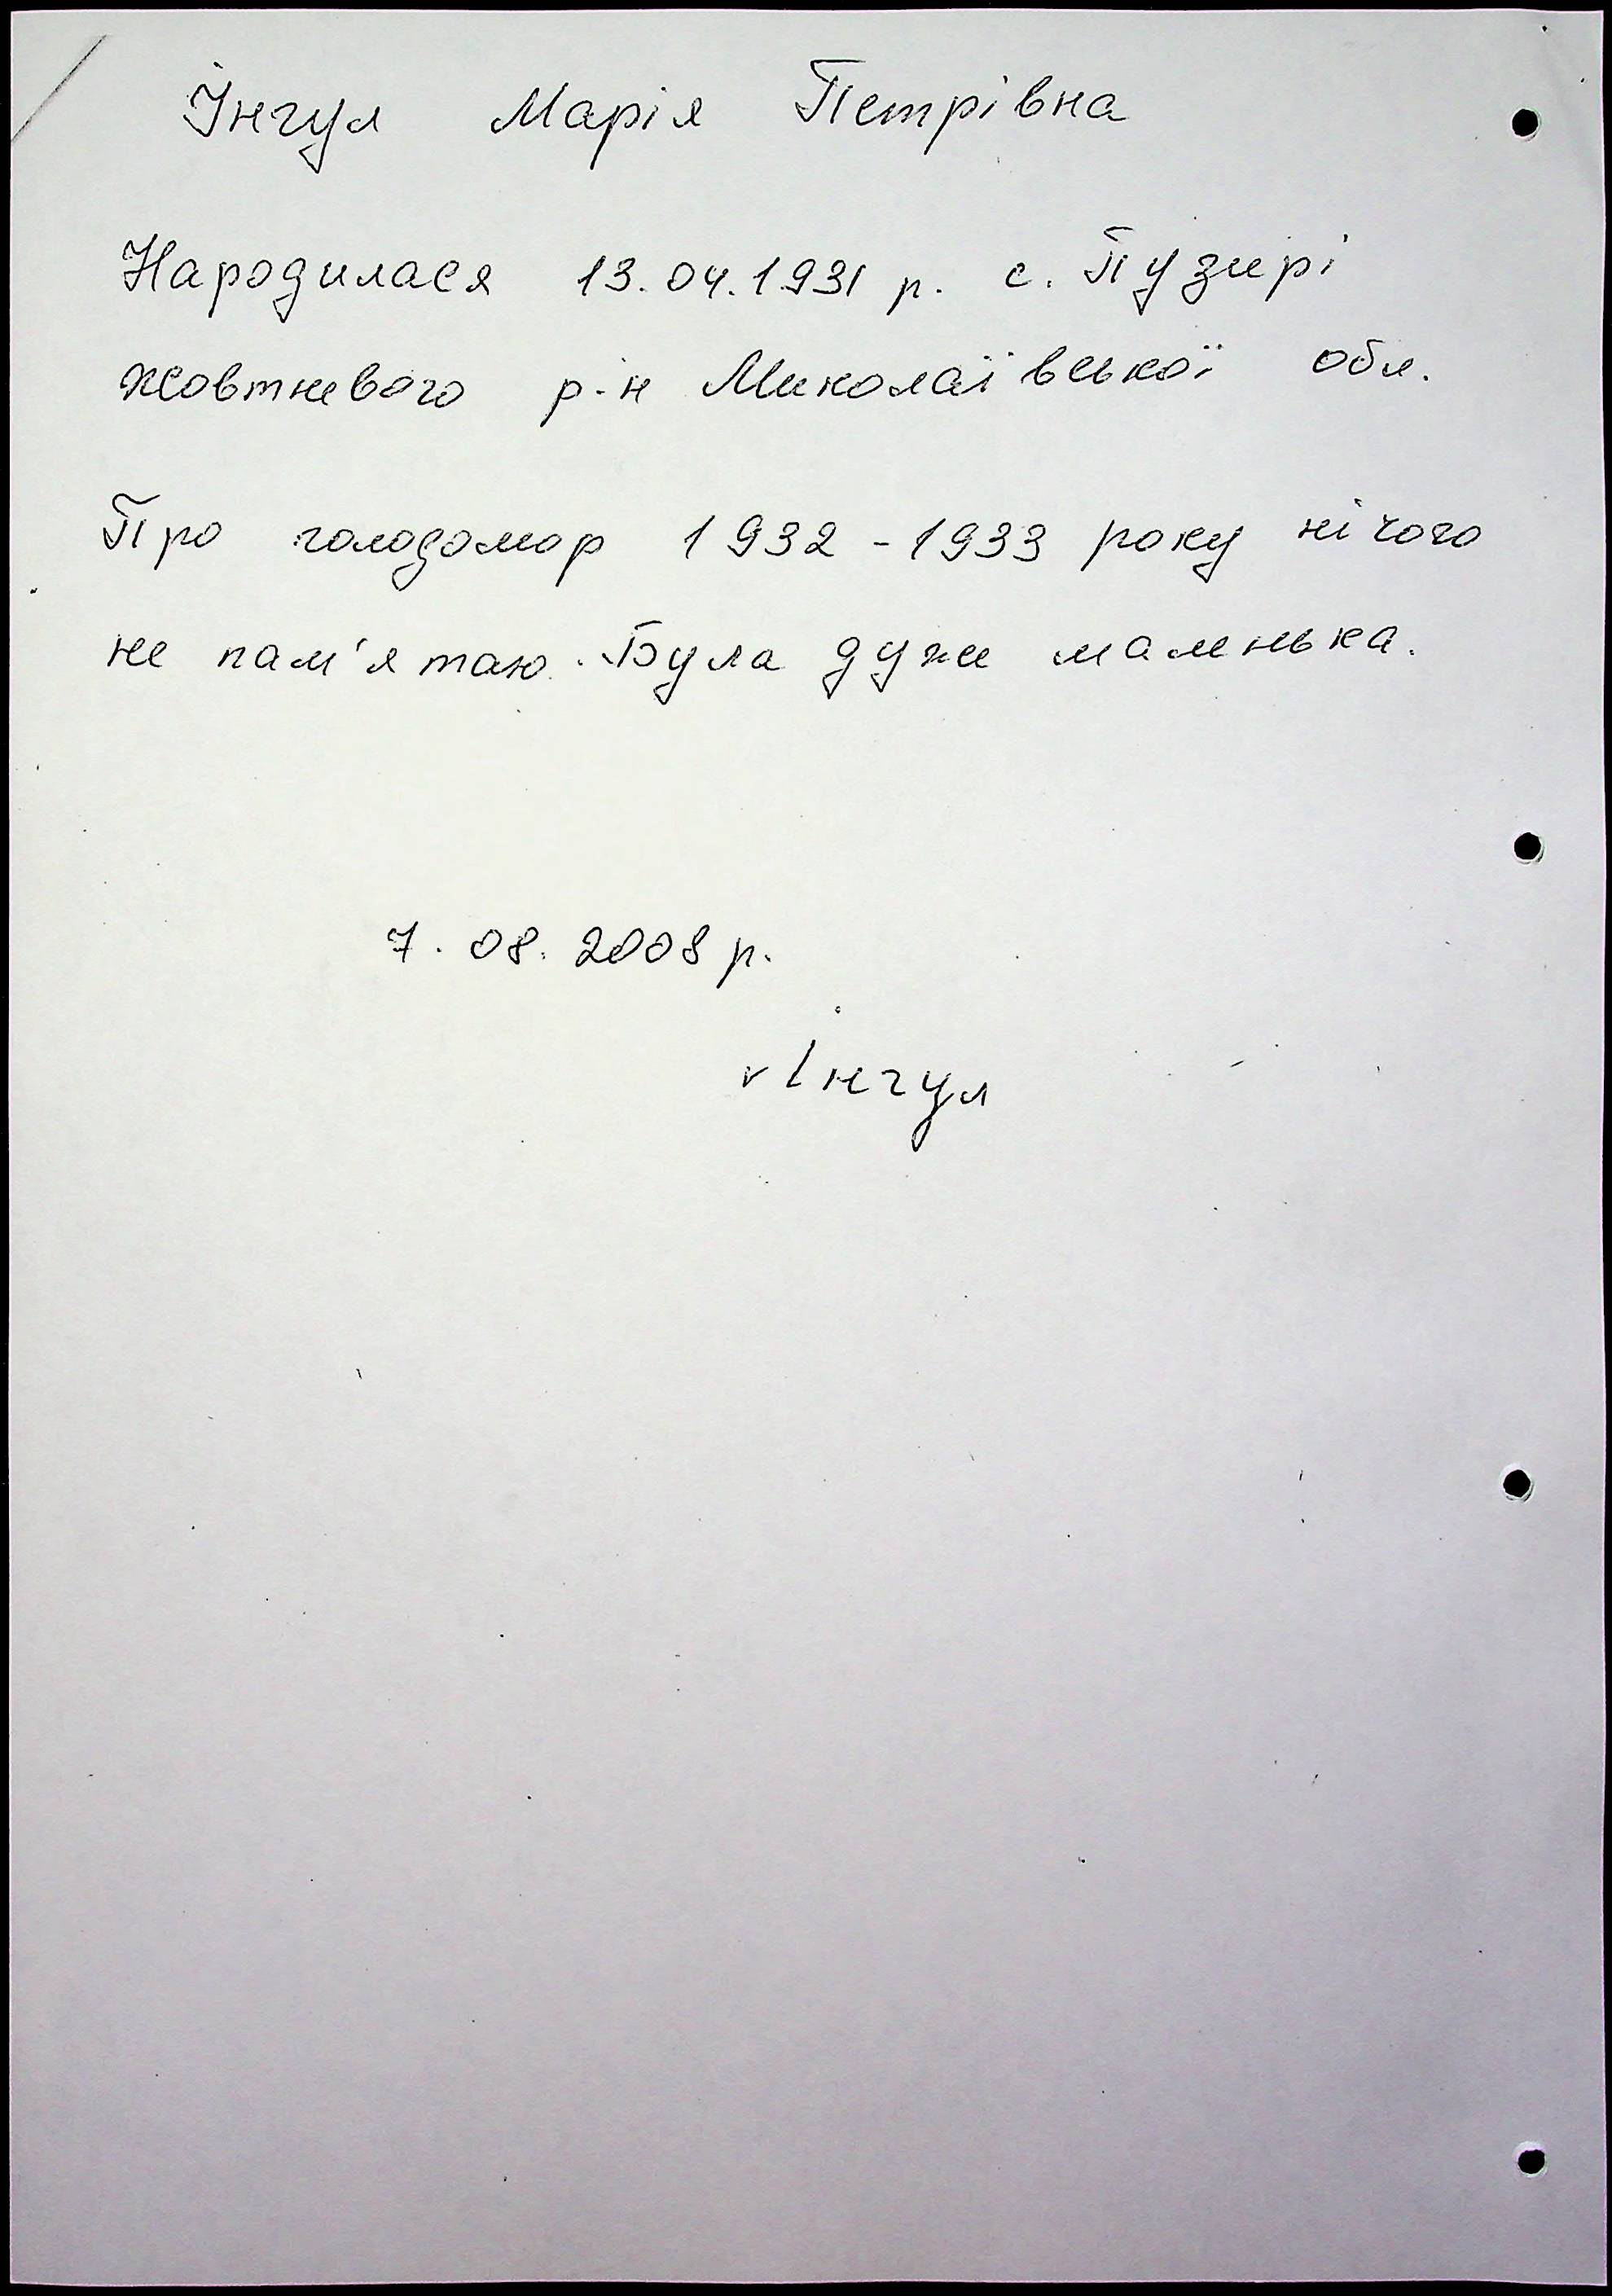 Інгул Марія Петрівна
Народилася 13.04.1931 р. с. Пузирі
жовтневого р-н Миколаївської обл.
Про голодомор 1932-1933 року нічого
не пам'ятаю. Була дуже маленька.
7.08.2008 р.
Інгул